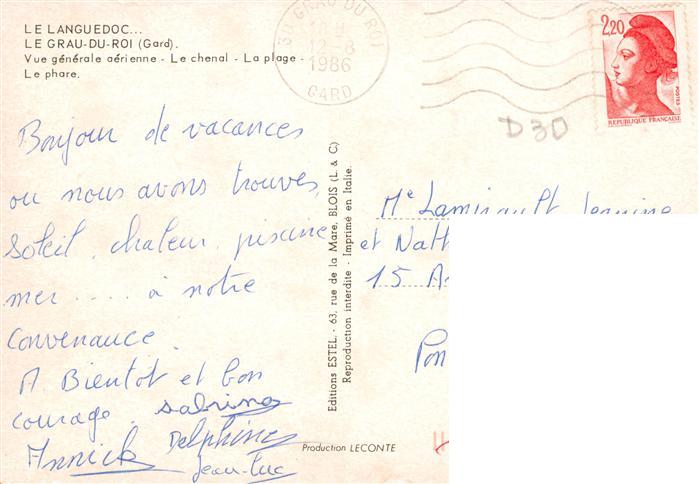 LE LANGUEDOC...
LE GRAU-DU-ROI (Gard).
Vue générale aérienne - Le chenal - La plage -
Le phare.
30 GRAU DU ROI
12-8
1986
GARD
2,20
POSTES
REPUBLIQUE FRANÇAISE
D30
Bonjour de vacances
ou nous avons trouves,
soleil, chaleur, piscine
mer .... à notre
convenance.
A Bientot et bon
courage. Sabrina
Annick Delphine
Jean-Luc
Editions ESTEL. - 63, rue de la Mare, BLOIS (L. & C)
Reproduction interdite - Imprimé en Italie.
Me Lamirault Jeannine
et Nath
15 A
Pon
Production LECONTE